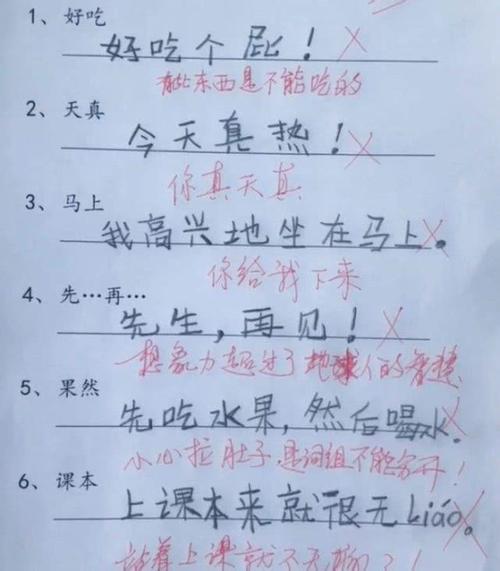 1、好吃
好吃个屁！
有些东西是不能吃的
2、天真
今天真热！
你真天真
3、马上
我高兴地坐在马上。
你给我下来
4、先…再…
先生，再见！
想象力超过了地球人的智慧
5、果然
先吃水果，然后喝水.
小心拉肚子，是词组不能分开！
6、课本
上课本来就很无kiáo。
站着上课就不无聊了！